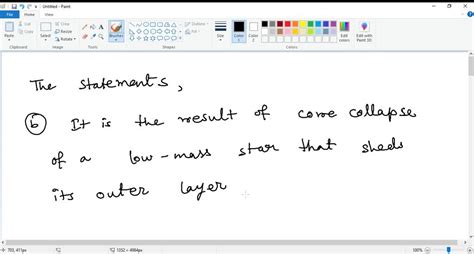 Untitled - Paint
File Home View
Paste Cut Copy
Select Crop Resize Rotate
Brushes
Shapes
Outline Fill
Size
Color 1 Color 2
Edit colors Edit with Paint 3D
Clipboard Image Tools Shapes Colors
The statements,
(b) It is the result of core collapse
of a low-mass star that sheds
its outer layer
703, 411px 1352 × 4984px 100%